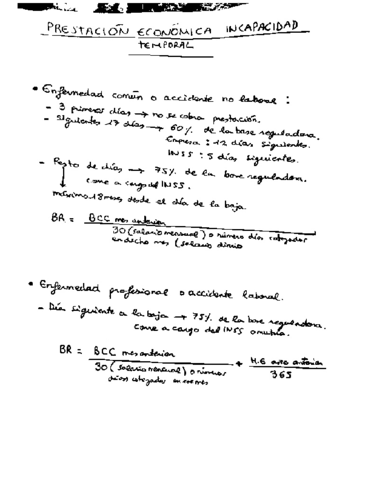 PRESTACIÓN ECONÓMICA INCAPACIDAD
TEMPORAL
• Enfermedad común o accidente no laboral :
- 3 primeros días → no se cobra prestación.
- Siguientes 17 días → 60% de la base reguladora.
Empresa : 12 días siguientes.
INSS : 5 días siguientes.
- Resto de días → 75% de la base reguladora.
corre a cargo del INSS.
máximo 18 meses desde el día de la baja.
BR = BCC mes anterior
30 (salario mensual) o número días cotizados
en dicho mes (salario diario
• Enfermedad profesional o accidente laboral.
- Día siguiente a la baja → 75% de la base reguladora.
corre a cargo del INSS o mutua.
BR = BCC mes anterior + H.E año anterior
30 (salario mensual) o número 365
días cotizados en ese mes